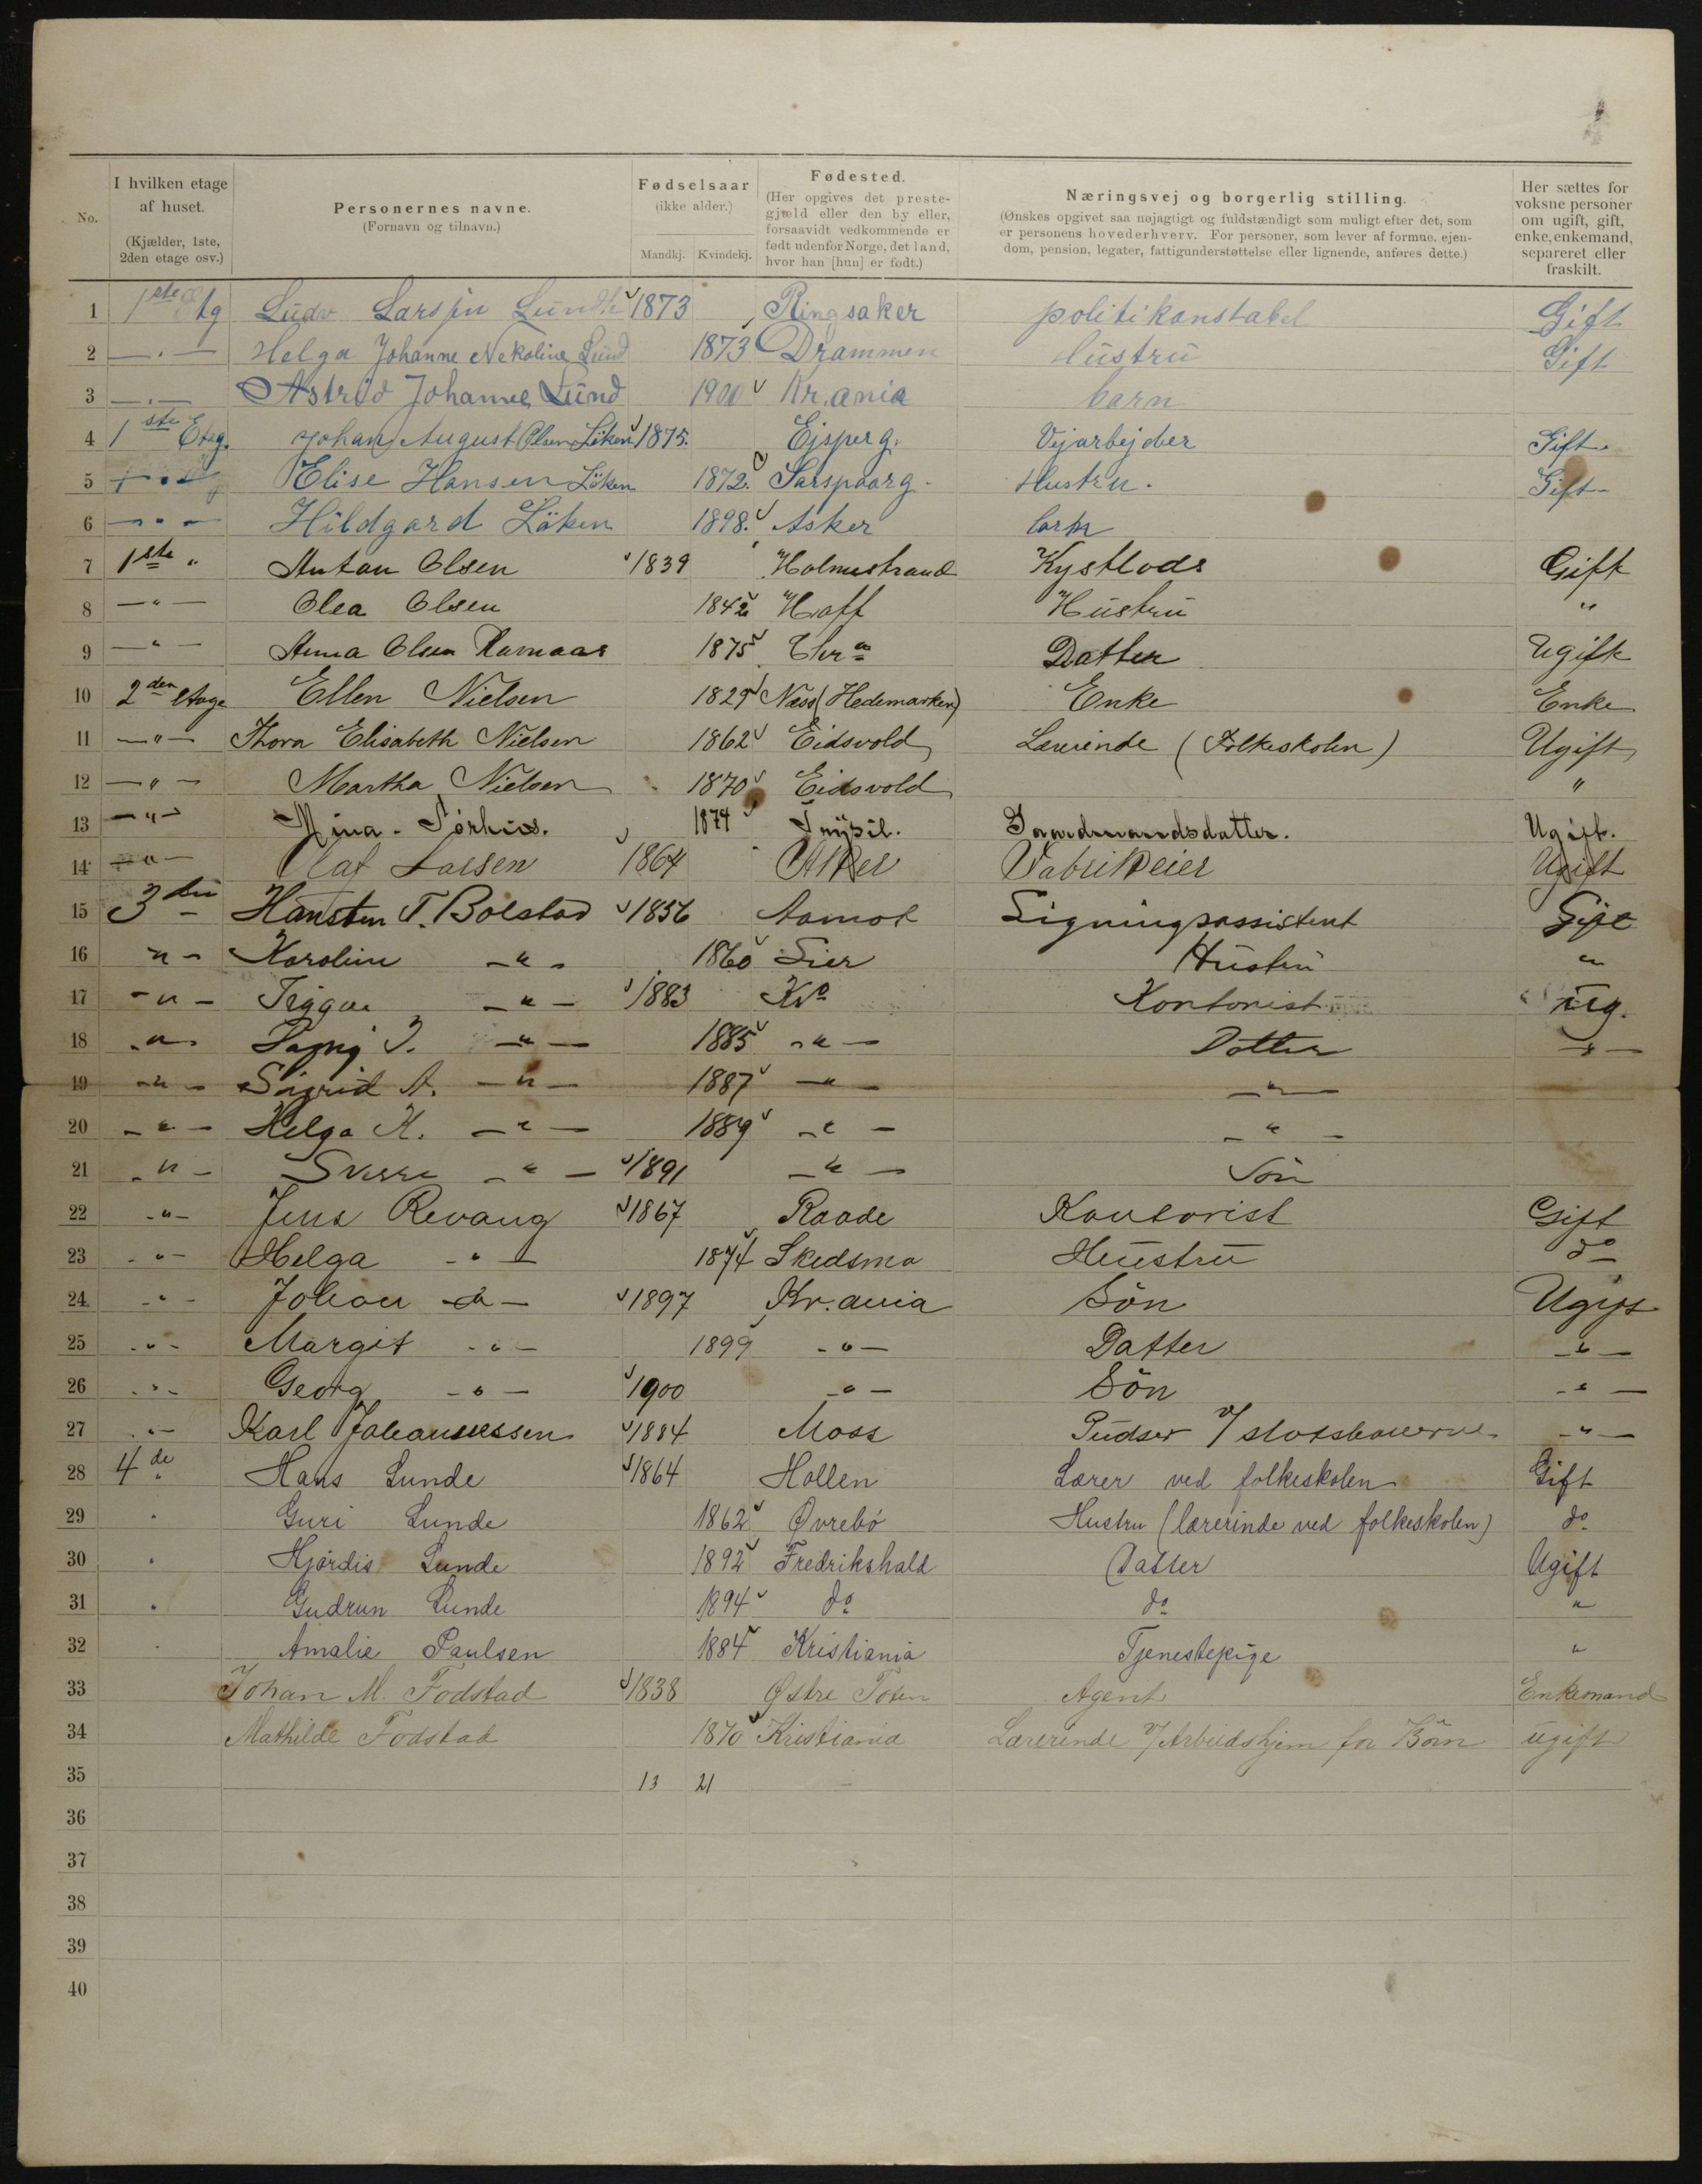 No.
I hvilken etage af huset. (Kjælder, 1ste, 2den etage osv.)
Personernes navne. (Fornavn og tilnavn.)
Fødselsaar (ikke alder.) Mandkj. Kvindekj.
Fødested. (Her opgives det prestegjæld eller den by eller, forsaavidt vedkommende er født udenfor Norge, det land, hvor han [hun] er født.)
Næringsvej og borgerlig stilling. (Ønskes opgivet saa nøjagtigt og fuldstændigt som muligt efter det, som er personens hovederhverv. For personer, som lever af formue, ejendom, pension, legater, fattigunderstøttelse eller lignende, anføres dette.)
Her sættes for voksne personer om ugift, gift, enke, enkemand, separeret eller fraskilt.
1 1ste Etg Ludv Larsen 1873 Ringsaker politikonstabel Gift
2 — " — Helga Johanne Nekoline Lund 1873 Drammen Hustru Gift
3 — " — Astrid Johanne Lund 1900 Kr.ania barn
4 1ste Etag. Johan August Olsen Løken 1875. Ejsperg. Vejarbejder Gift
5 Elise Hansen Løken 1872. Sarspaarg. Hustru. Gift
6 — " — Hildgard Løken 1898. Asker barn
7 1ste " Anton Olsen 1839 Holmestrand Kystlods Gift
8 — " — Olea Olsen 1842 Haff Hustru "
9 — " — Anna Olsen Ramaas 1875 Chra Datter Ugift
10 2den Etage Ellen Nielsen 1829 Næss (Hedemarken) Enke Enke
11 — " — Thora Elisabeth Nielsen 1862 Eidsvold Lærerinde (Folkeskolen) Ugift
12 — " — Martha Nielsen 1870 Eidsvold "
13 — " — Mina 1874 Trysil. Gaardmandsdatter. Ugift.
14 — " — Olaf Larsen 1864 Aker Fabrikeier Ugift
15 3die Hansten T. Bolstad 1856 Aamot Ligningsassistent Gift
16 " Karoline — " — 1860 Lier Hustru "
17 — " — Tryggve — " — 1883 Kra Kontorist Ug.
18 — " — 1885 — " — Datter — " —
19 — " — Sigrid A. — " — 1887 — " — — " —
20 — " — Helga K. — " — 1889 — " — — " —
21 — " — Sverre — " — 1891 — " — Søn
22 — " — Jens Revaug 1867 Raade Kontorist Gift
23 — " — Helga — " — 1874 Skedsmo Hustru do
24 — " — Johan — " — 1897 Kr.ania Søn Ugift
25 — " — Margit — " — 1899 — " — Datter — " —
26 — " — Georg — " — 1900 — " — Søn — " —
27 — " — Karl Johannessen 1884 Moss Pudser v/ — " —
28 4de " Hans Lunde 1864 Hollen Lærer ved folkeskolen Gift
29 " Guri Lunde 1862 Øvrebø Hustru (lærerinde ved folkeskolen) do.
30 " Hjørdis Lunde 1892 Fredrikshald Datter Ugift
31 " Gudrun Lunde 1894 do do "
32 " Amalie Paulsen 1884 Kristiania Tjenestepige "
33 Johan M. Fodstad 1838 Østre Toten Agent Enkemand
34 Mathilde Fodstad 1870 Kristiania Lærerinde v/ Arbeidshjem for Børn ugift
35 13 21
36
37
38
39
40